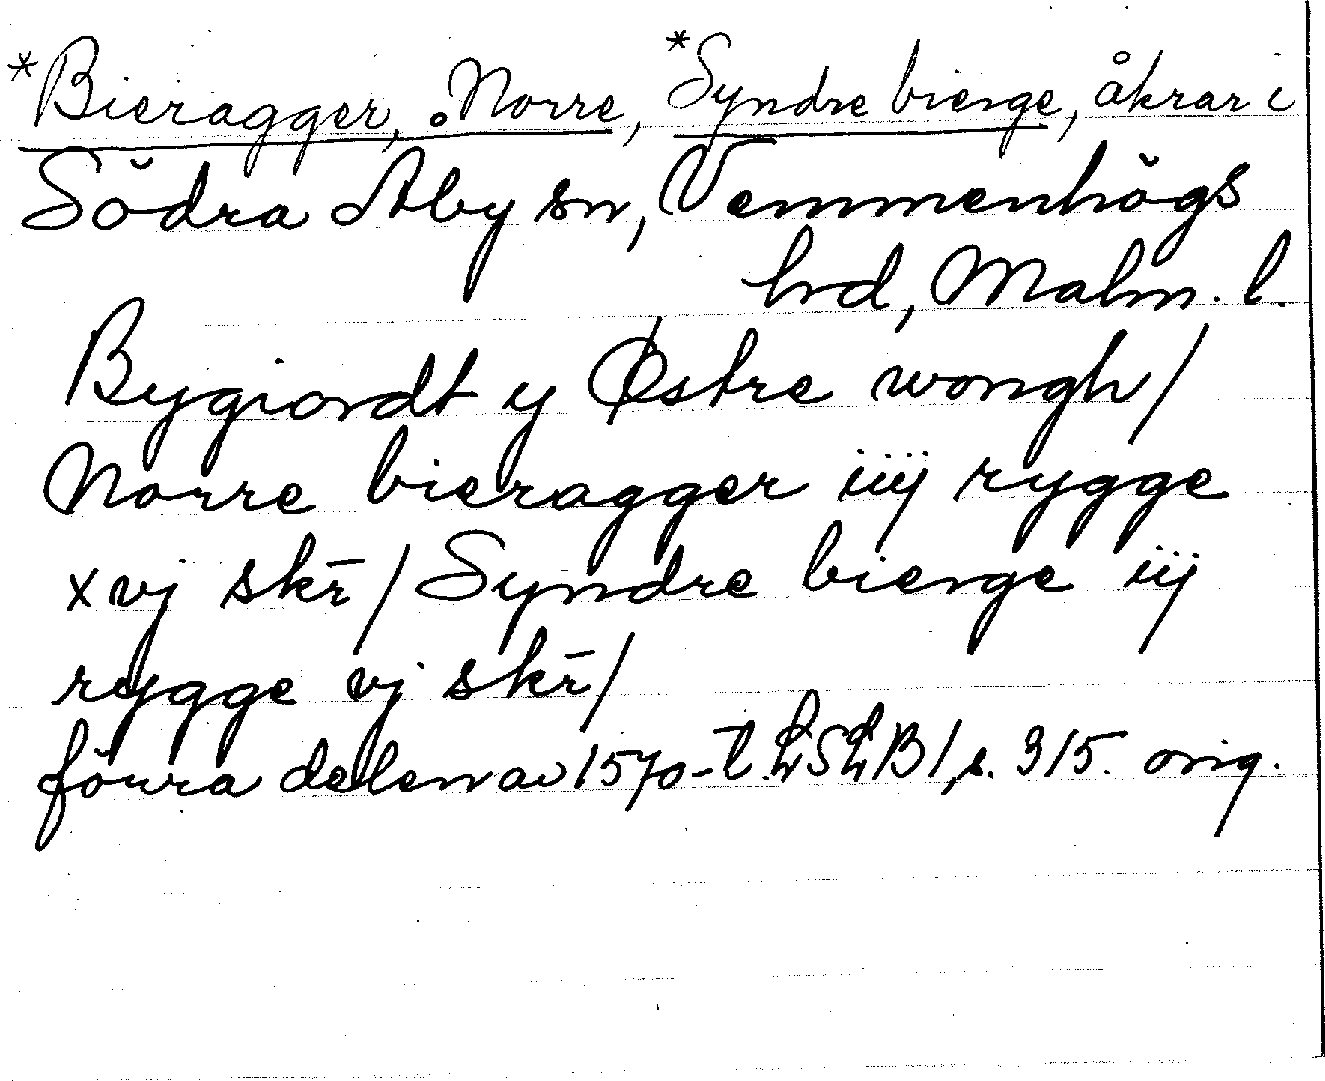 *Bieragger, Norre, *Syndre bierge, åkrar i
Södra Åby sn, Vemmenhögs
hd, Malm. l.
Bygiordt y Østre wongh/
Norre bieragger iiij rygge
xvj skr̄/ Syndre bierge iij
rygge vj skr̄/
förra delen av 1570-t. LSLB1, s. 315. orig.